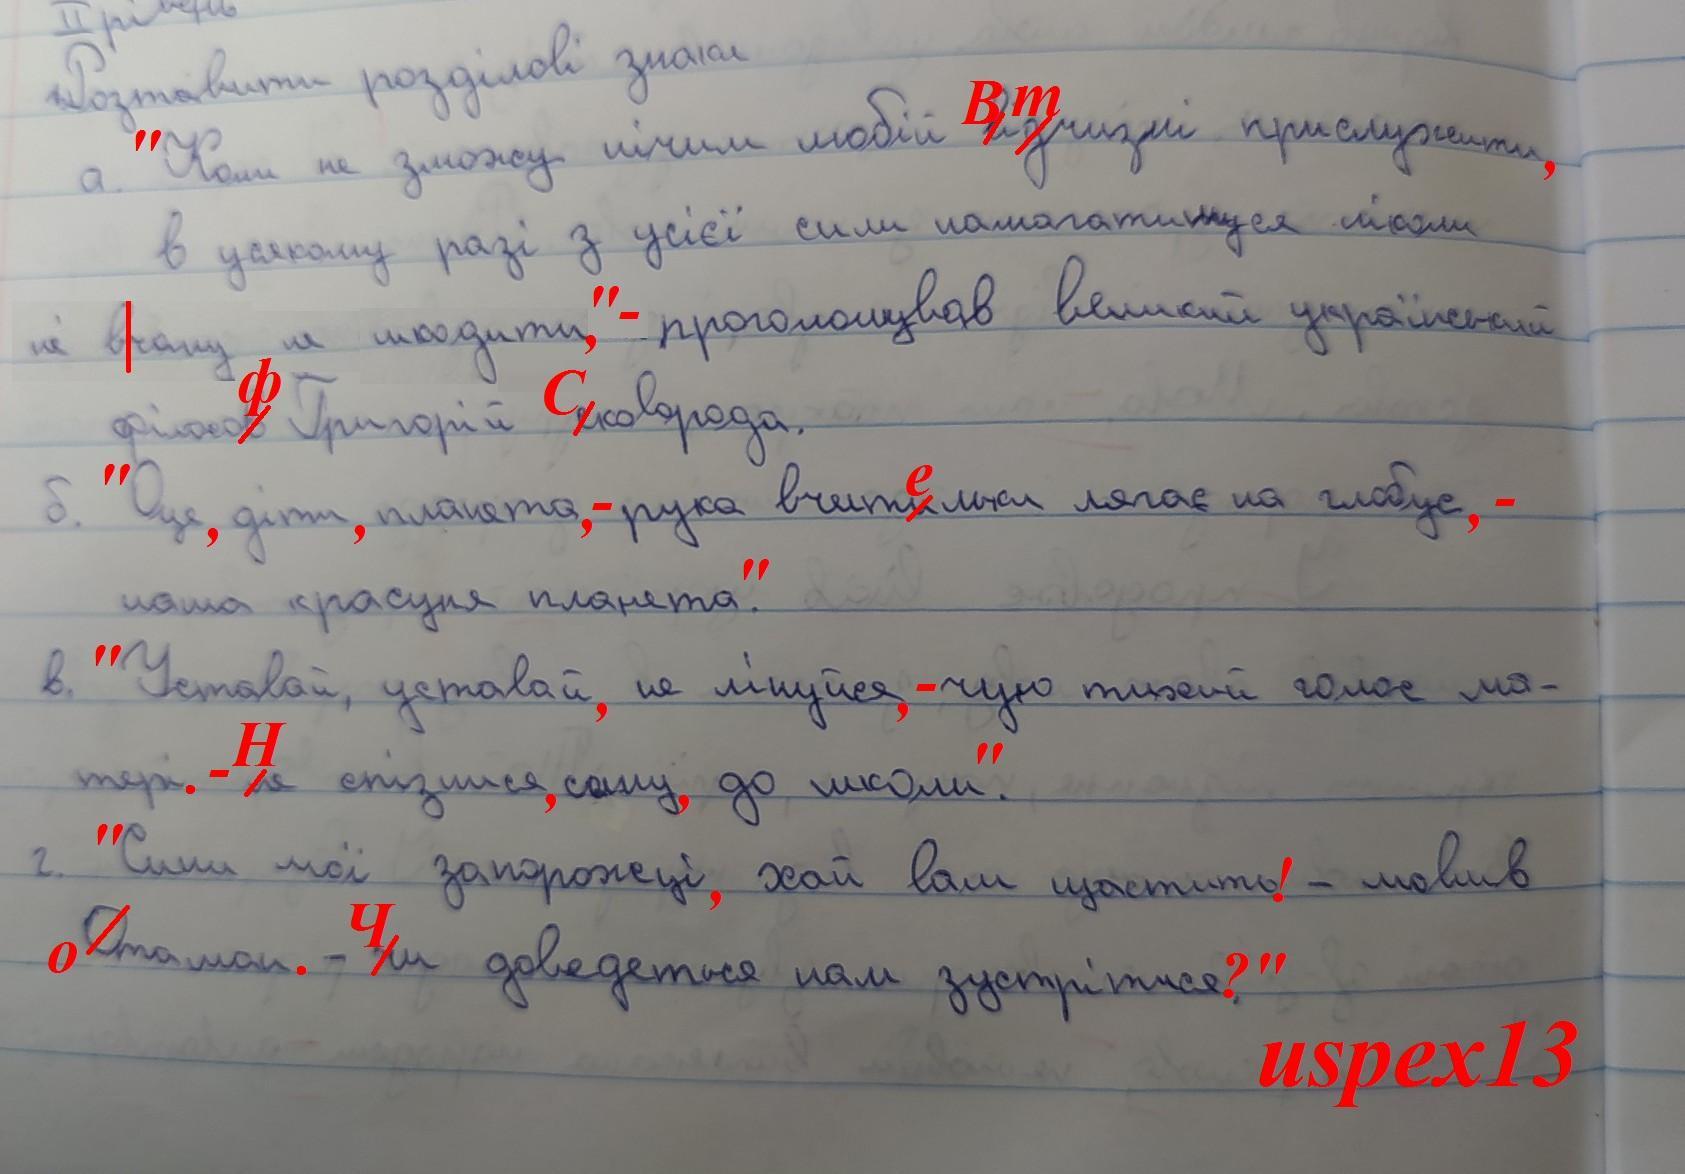 II рівень
Розтавити розділові знаки
а. "Коли не зможу нічим любій Вітчизні прислужити,
в усякому разі з усієї сили намагатимуся ніколи
ні в чому не шкодити,"- проголошував великий український
філософ Григорій Сковорода.
б. "Оце, діти, планета,- рука вчительки лягає на глобус, -
наша красуня планета."
в. "Уставай, уставай, не лінуйся, -чую тихий голос ма-
тері. - Не спізнися, сину, до школи".
г. "Сини мої запорожці, хай вам щастить! - мовив
отаман. - Чи доведеться нам зустрітися?"
uspex13